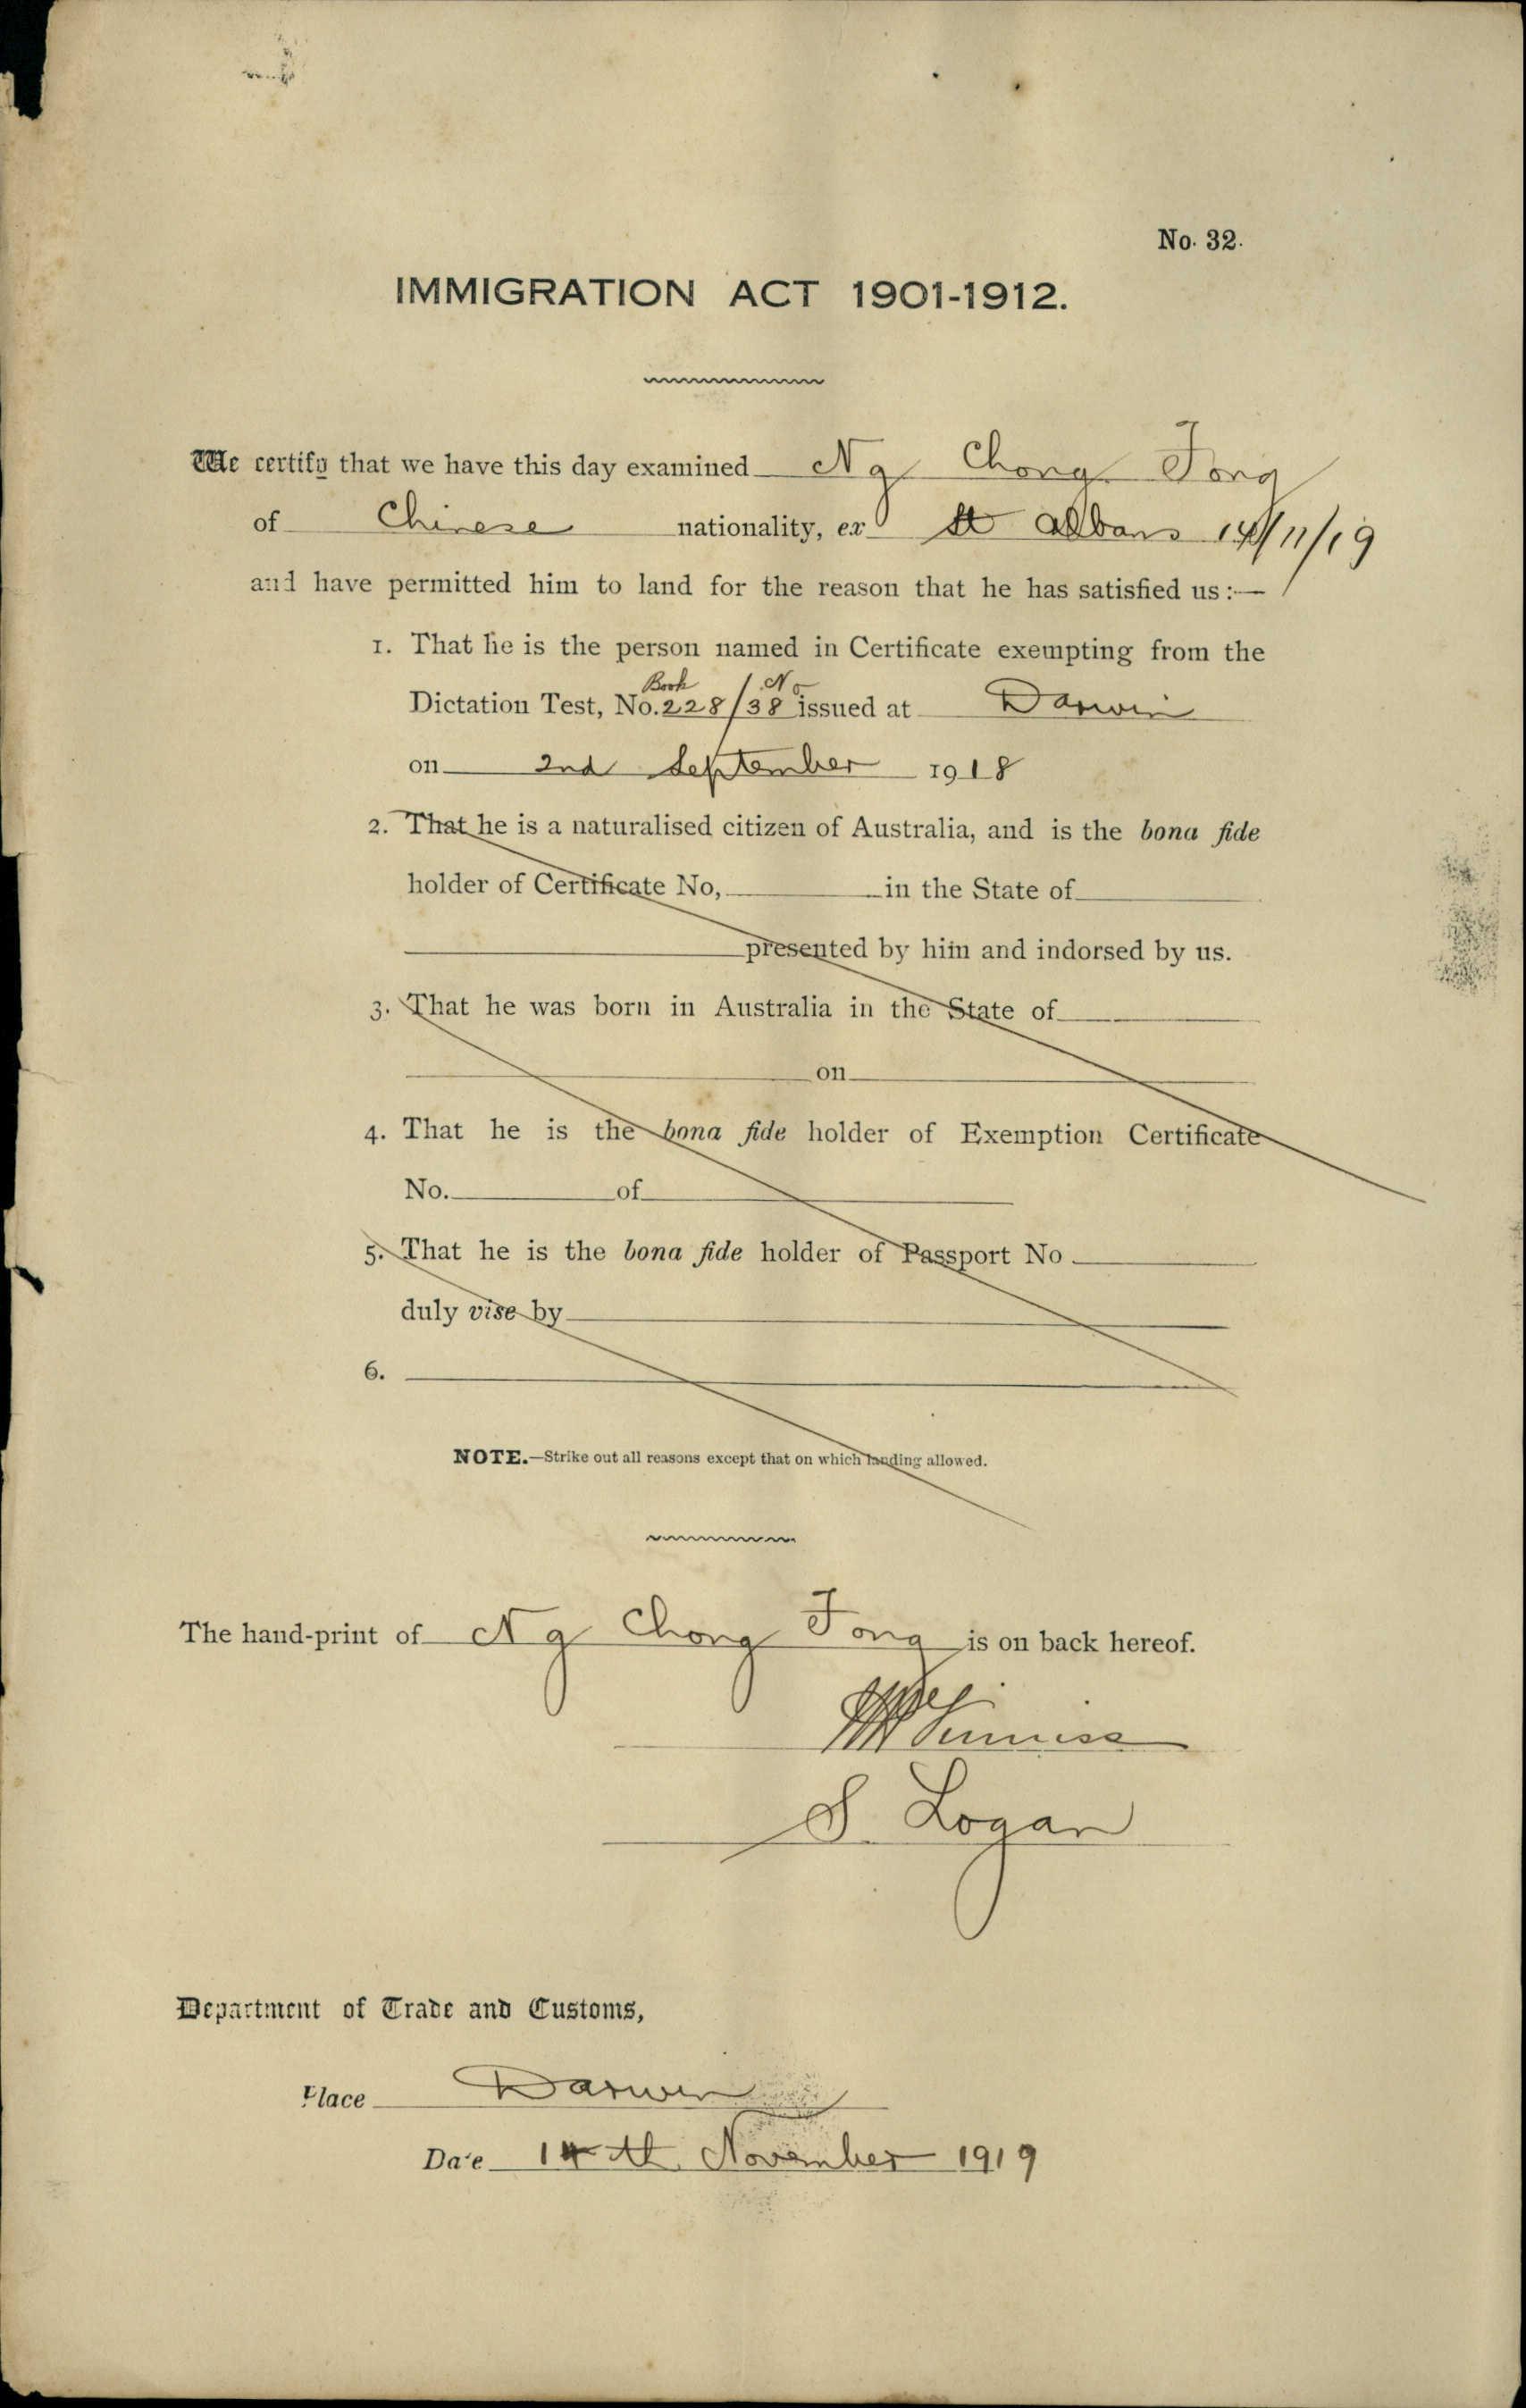 No. 32.
IMMIGRATION ACT 1901-1912.
We certify that we have this day examined Ng Chong Fong
of Chinese nationality, ex St Albans 14/11/19
and have permitted him to land for the reason that he has satisfied us:—
1. That he is the person named in Certificate exempting from the
Book No
Dictation Test, No. 228/38 issued at Darwin
on 2nd September 1918
2. That he is a naturalised citizen of Australia, and is the bona fide
holder of Certificate No, in the State of
presented by him and indorsed by us.
3. That he was born in Australia in the State of
on
4. That he is the bona fide holder of Exemption Certificate
No. of
5. That he is the bona fide holder of Passport No
duly vise by
6.
NOTE.—Strike out all reasons except that on which landing allowed.
The hand-print of Ng Chong Fong is on back hereof.
S. Logan
Department of Trade and Customs,
Place Darwin
Date 14th November 1919